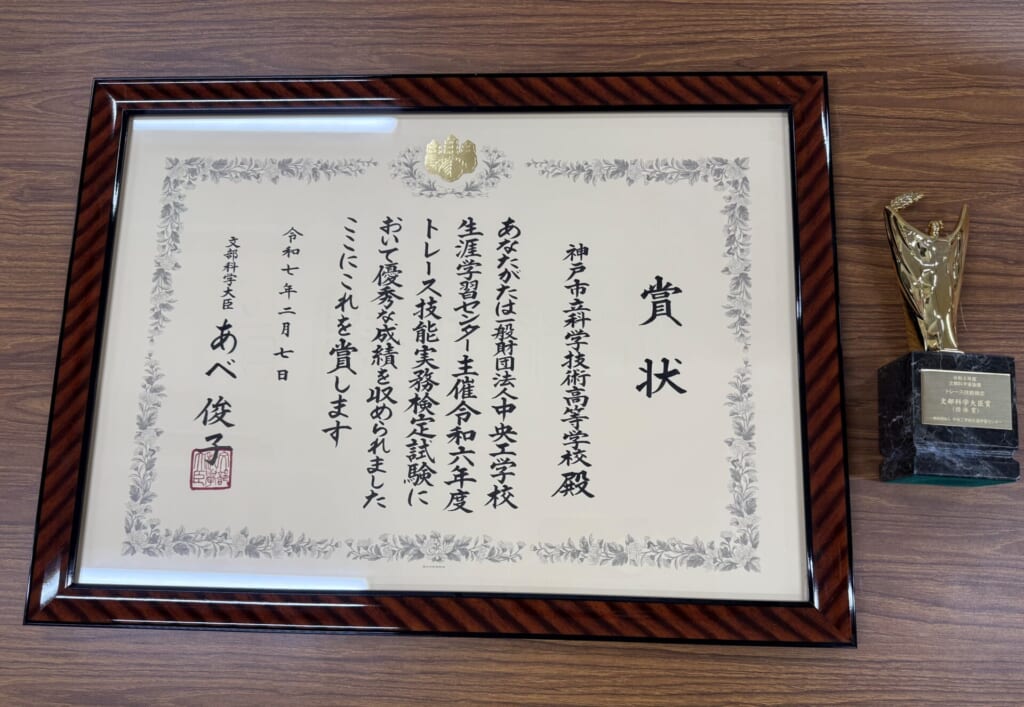 賞状
神戸市立科学技術高等学校殿
あなたがたは一般財団法人中央工学校
生涯学習センター主催令和六年度
トレース技能実務検定試験に
おいて優秀な成績を収められました
ここにこれを賞します
令和七年二月七日
文部科学大臣 あべ俊子
令和6年度
文部科学省後援
トレース技能検定
文部科学大臣賞
(団体賞)